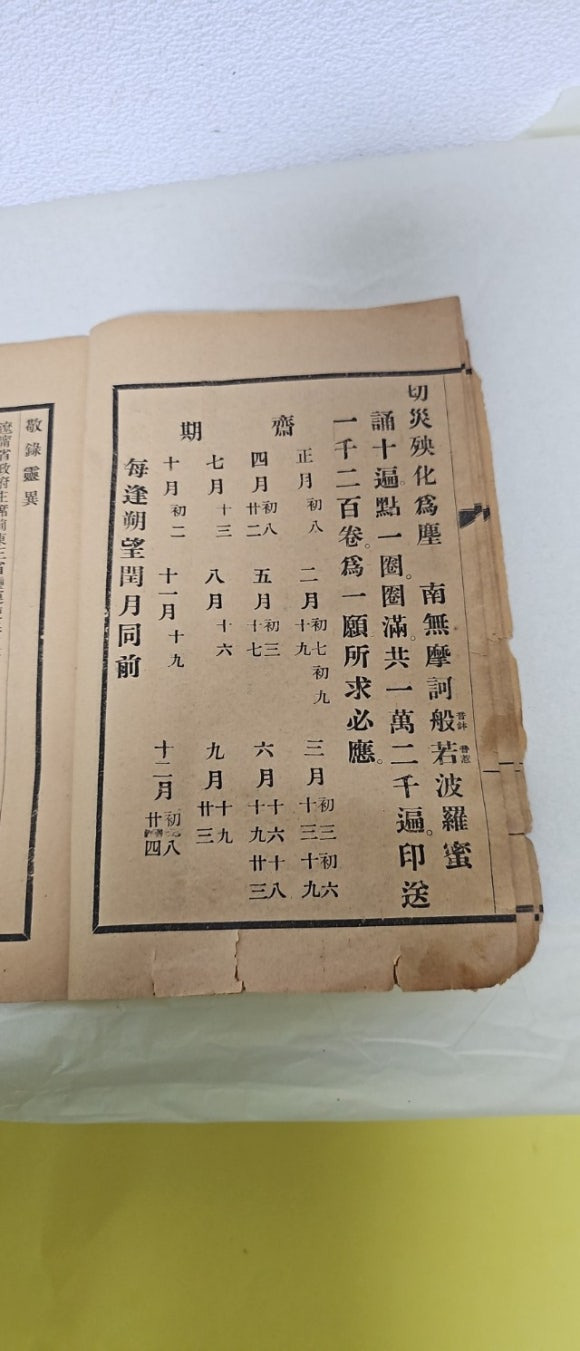 切災殃化爲塵　南無摩訶般音鉢若音惹波羅蜜
誦十遍。點一圈。圈滿。共一萬二千遍。印送
一千二百卷。爲一願所求必應。
齋期
正月　初八
二月　初七　初九　十九
三月　初三　初六　十三　十九
四月　初八　廿二
五月　初三　十七
六月　十六　十八　十九　廿三
七月　十三
八月　十六
九月　十九　廿三
十月　初二
十一月　十九
十二月　初八　廿四
每逢朔望閏月同前
敬錄靈異